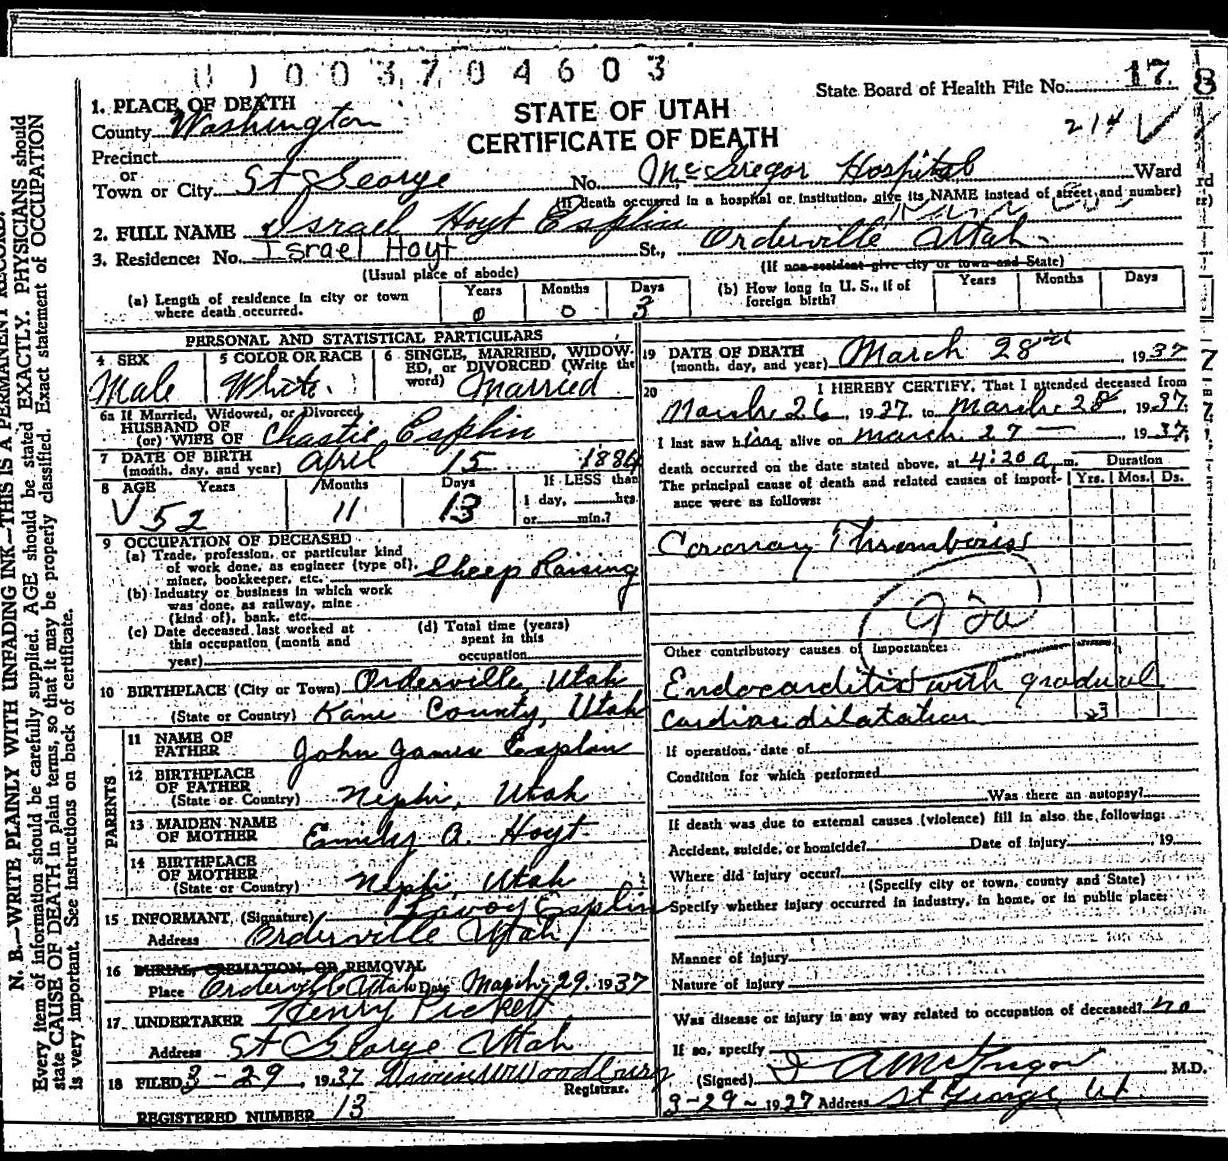 0 0 3 7 0 4 6 0 3
State Board of Health File No. 17 8
214
STATE OF UTAH
CERTIFICATE OF DEATH
1. PLACE OF DEATH
County Washington
Precinct
or
Town or City St George No. McGregor Hospital Ward
(If death occurred in a hospital or institution, give its NAME instead of street and number)
2. FULL NAME Israel Hoyt Esplin
Israel Hoyt
3. Residence: No. St., Orderville Utah
(Usual place of abode) (If non-resident give city or town and State)
(a) Length of residence in city or town where death occurred. Years 0 Months 0 Days 3
(b) How long in U. S., if of foreign birth? Years Months Days
PERSONAL AND STATISTICAL PARTICULARS
4 SEX Male
5 COLOR OR RACE White
6 SINGLE, MARRIED, WIDOWED, or DIVORCED (Write the word) Married
6a If Married, Widowed, or Divorced
HUSBAND OF
(or) WIFE OF Chastie Esplin
7 DATE OF BIRTH
(month, day, and year) April 15 1884
8 AGE Years 52 Months 11 Days 13 If LESS than 1 day, hrs. or min.?
9 OCCUPATION OF DECEASED
(a) Trade, profession, or particular kind of work done, as engineer (type of), miner, bookkeeper, etc. Sheep Raising
(b) Industry or business in which work was done, as railway, mine (kind of), bank, etc.
(c) Date deceased last worked at this occupation (month and year)
(d) Total time (years) spent in this occupation
10 BIRTHPLACE (City or Town) Orderville, Utah
(State or Country) Kane County, Utah
PARENTS
11 NAME OF FATHER John James Esplin
12 BIRTHPLACE OF FATHER
(State or Country) Nephi, Utah
13 MAIDEN NAME OF MOTHER Emily A. Hoyt
14 BIRTHPLACE OF MOTHER
(State or Country) Nephi, Utah
15 INFORMANT, (Signature) Lavoy Esplin
Address Orderville Utah
16 BURIAL, CREMATION, OR REMOVAL
Place Orderville Utah Date March 29, 1937
17. UNDERTAKER Henry Pickett
Address St George Utah
18 FILED 3-29, 1937 Woodbury
Registrar.
REGISTERED NUMBER 13
19 DATE OF DEATH
(month, day, and year) March 28 1937
20 I HEREBY CERTIFY, That I attended deceased from
March 26, 1937 to March 28, 1937.
I last saw him alive on March 27 1937
death occurred on the date stated above, at 4:20 a. m. Duration
The principal cause of death and related causes of importance were as follows: Yrs. Mos. Ds.
Coronary Thrombosis
Other contributory causes of importance:
Endocarditis with gradual
cardiac dilatation 23
If operation, date of
Condition for which performed
Was there an autopsy?
If death was due to external causes (violence) fill in also the following:
Accident, suicide, or homicide? Date of injury 19
Where did injury occur?
(Specify city or town, county and State)
Specify whether injury occurred in industry, in home, or in public place:
Manner of injury
Nature of injury
Was disease or injury in any way related to occupation of deceased? no
If so, specify
(Signed) McGregor M.D.
3-29- 1937 Address St George, Ut.
N. B.—WRITE PLAINLY WITH UNFADING INK—THIS IS A PERMANENT RECORD.
Every item of information should be carefully supplied. AGE should be stated EXACTLY. PHYSICIANS should
state CAUSE OF DEATH in plain terms, so that it may be properly classified. Exact statement of OCCUPATION
is very important. See instructions on back of certificate.